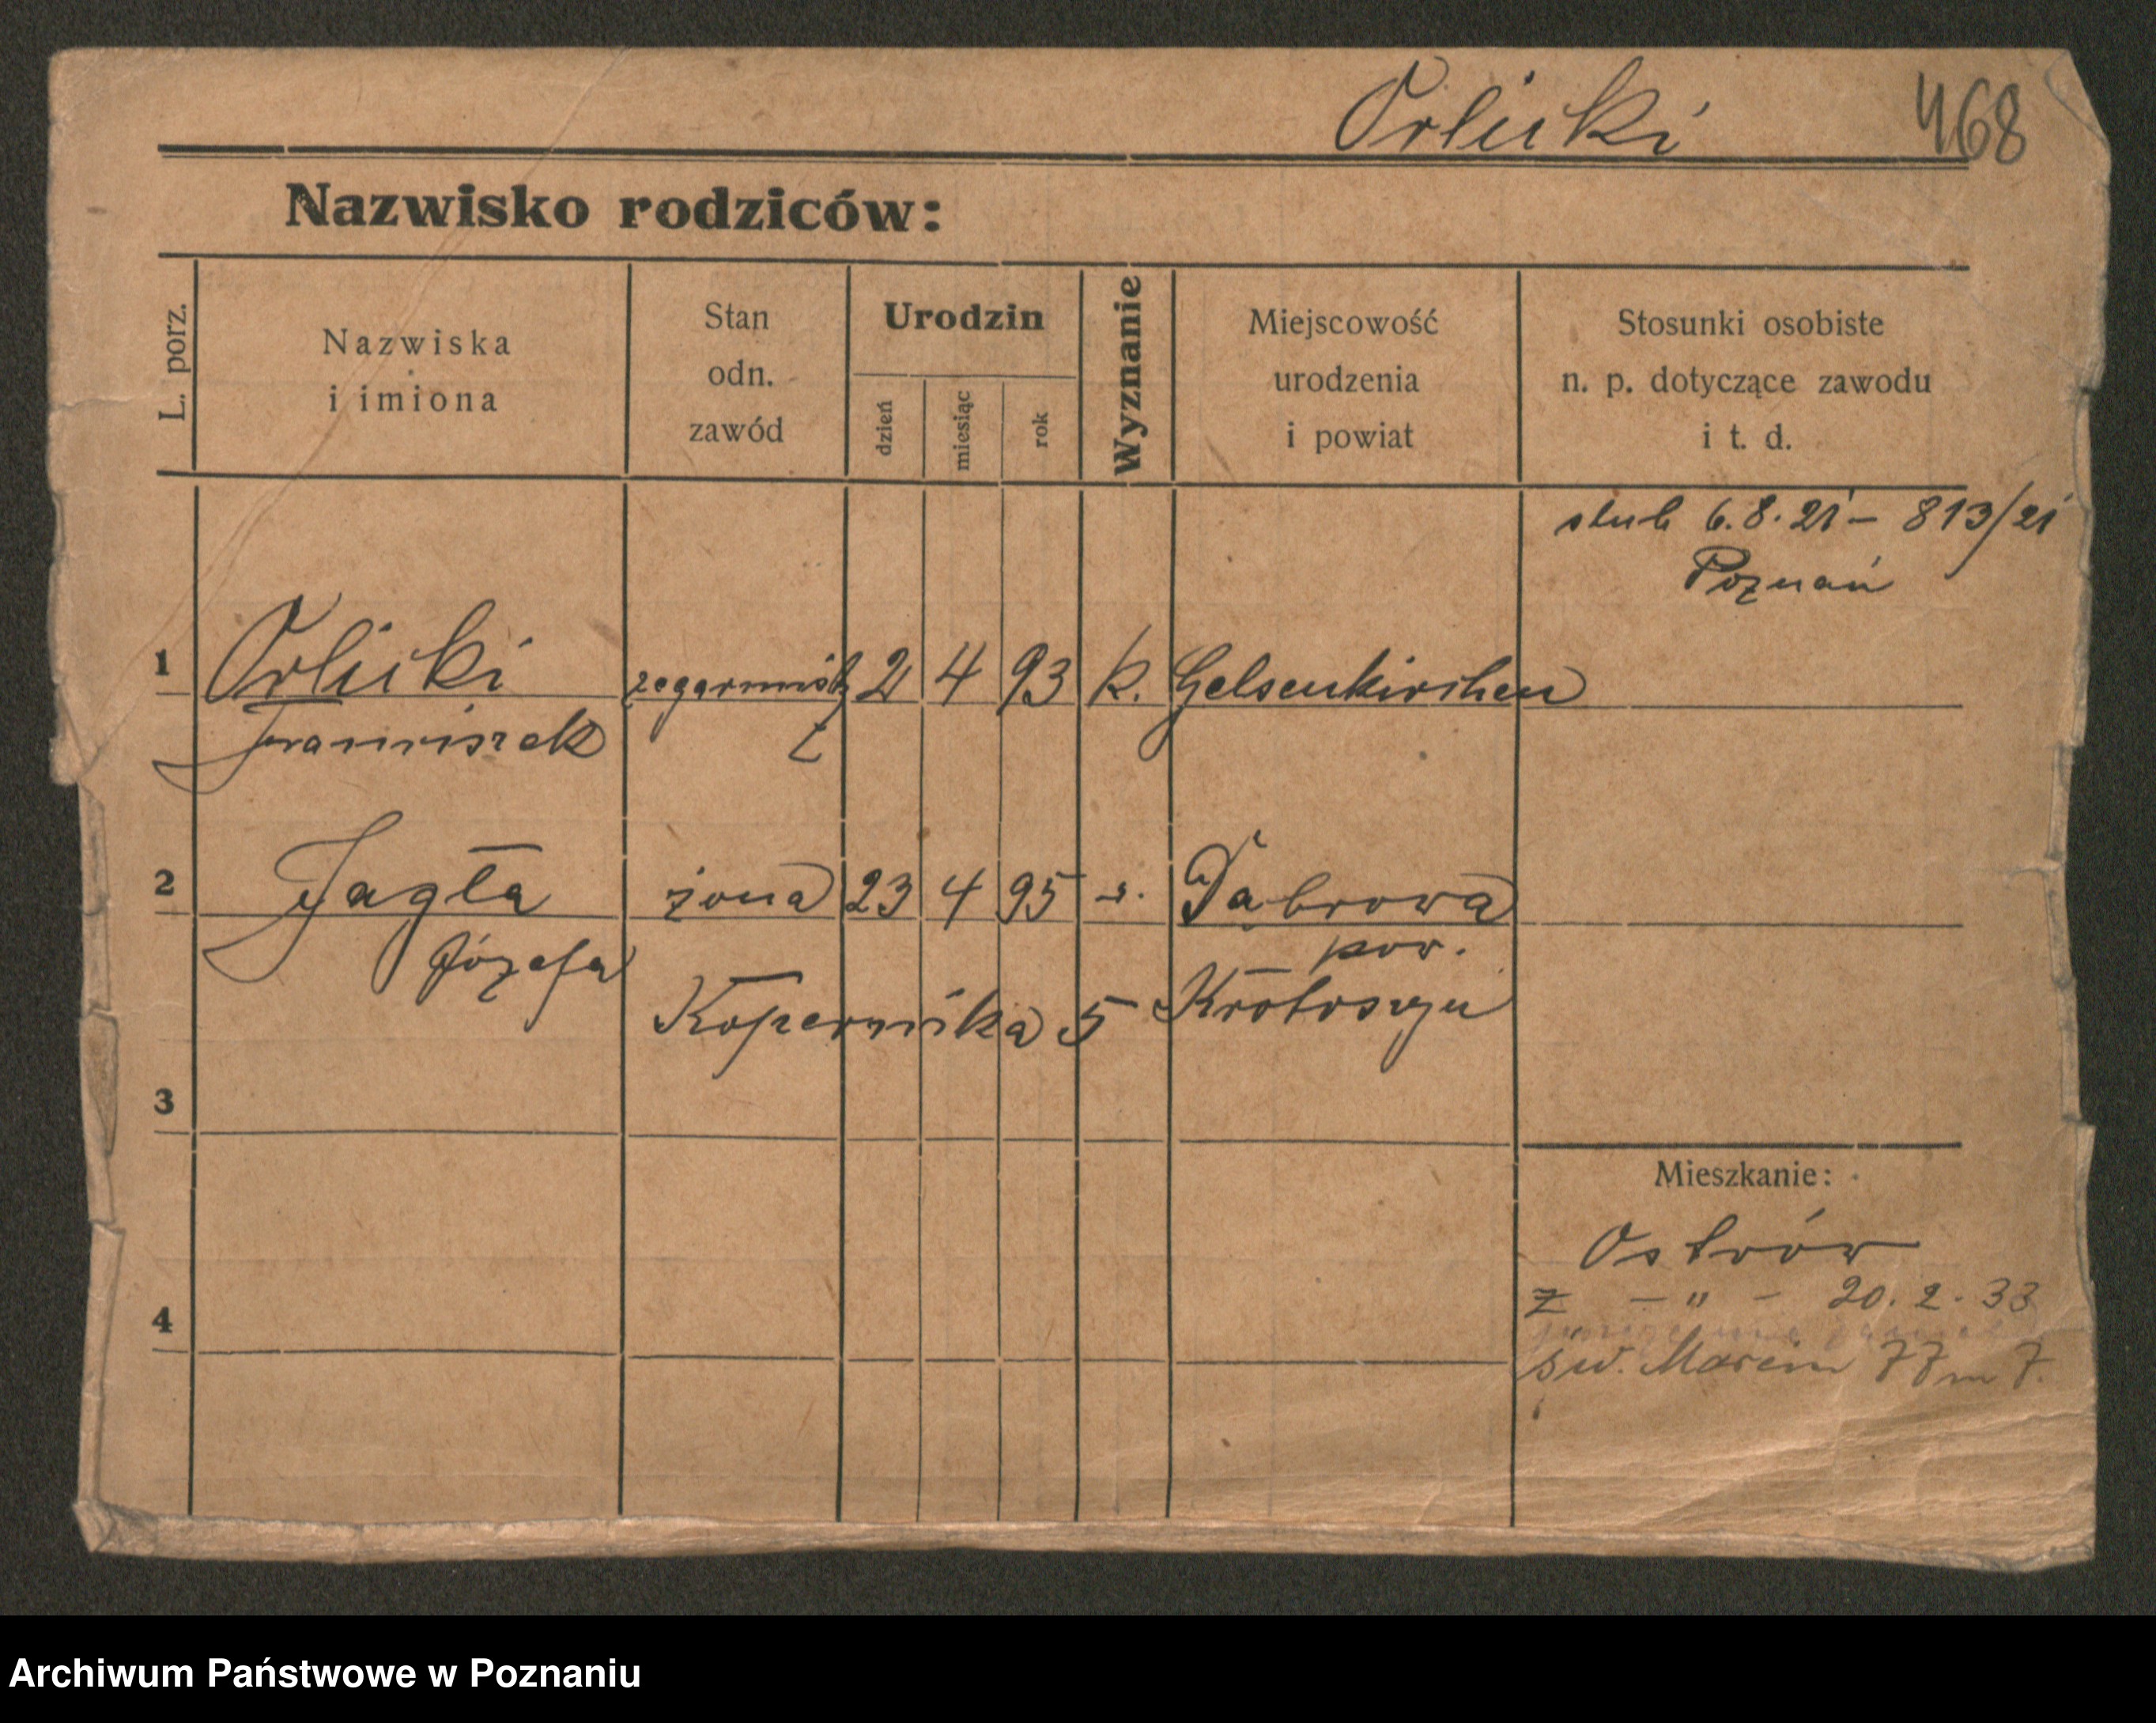 Orlicki 468
Nazwisko rodziców:
L. porz.
Nazwiska
i imiona
Stan
odn.
zawód
Urodzin
dzień
miesiąc
rok
Wyznanie
Miejscowość
urodzenia
i powiat
Stosunki osobiste
n. p. dotyczące zawodu
i t. d.
ślub 6.8.21 – 813/21
Poznań
1 Orlicki zegarmist 2 4 93 k. Gelsenkirchen
Franciszek
2 Jagła żona 23 4 95 Dąbrowa
Józefa pow.
Kopernika 5 Krotoszyn
3
Mieszkanie:
Ostrów
z – " – 20.2.33
4
św. Marcin 77 m 7.
Archiwum Państwowe w Poznaniu